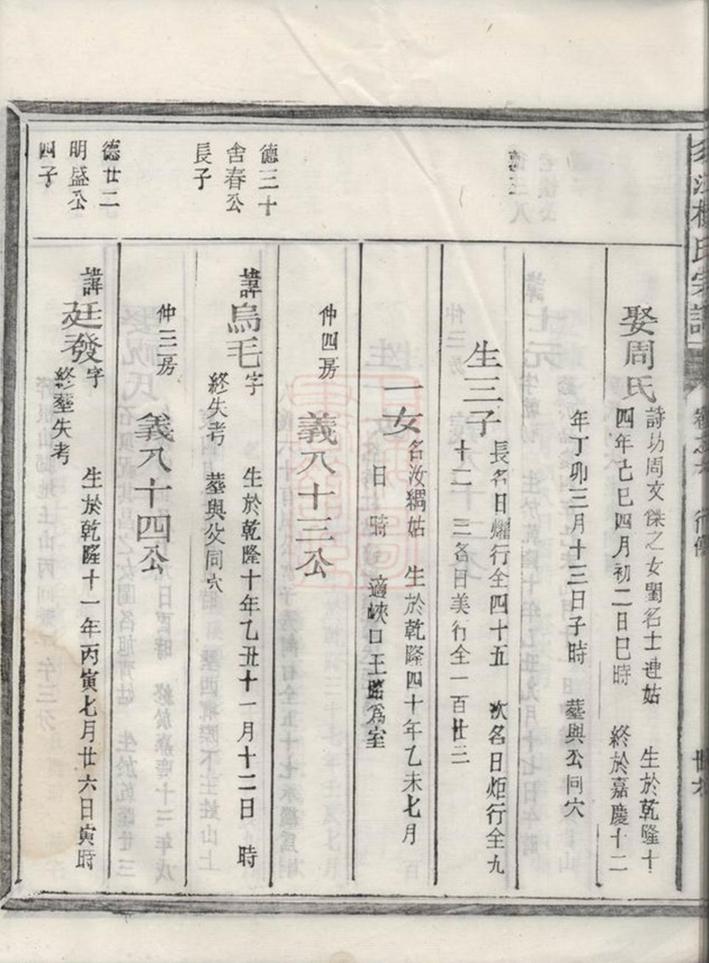 娶周氏
詩坊周文傑之女閨名士連姑 生於乾隆十
四年己巳四月初二日巳時 終於嘉慶十二
年丁卯三月十三日子時 墓與公同穴
生三子
長名日耀行全四十五 次名日炬行全九
十二 三名日美行全一百廿三
一女
名汝綢姑 生於乾隆四十年乙未七月
日 時 適峽口王
為室
仲四房 義八十三公
德三十
舍春公
長子
諱烏毛字 生於乾隆十年乙丑十一月十二日 時
終失考 墓與父同穴
仲三房 義八十四公
德廿二
明盛公
四子
諱廷發字 生於乾隆十一年丙寅七月廿六日寅時
終墓失考